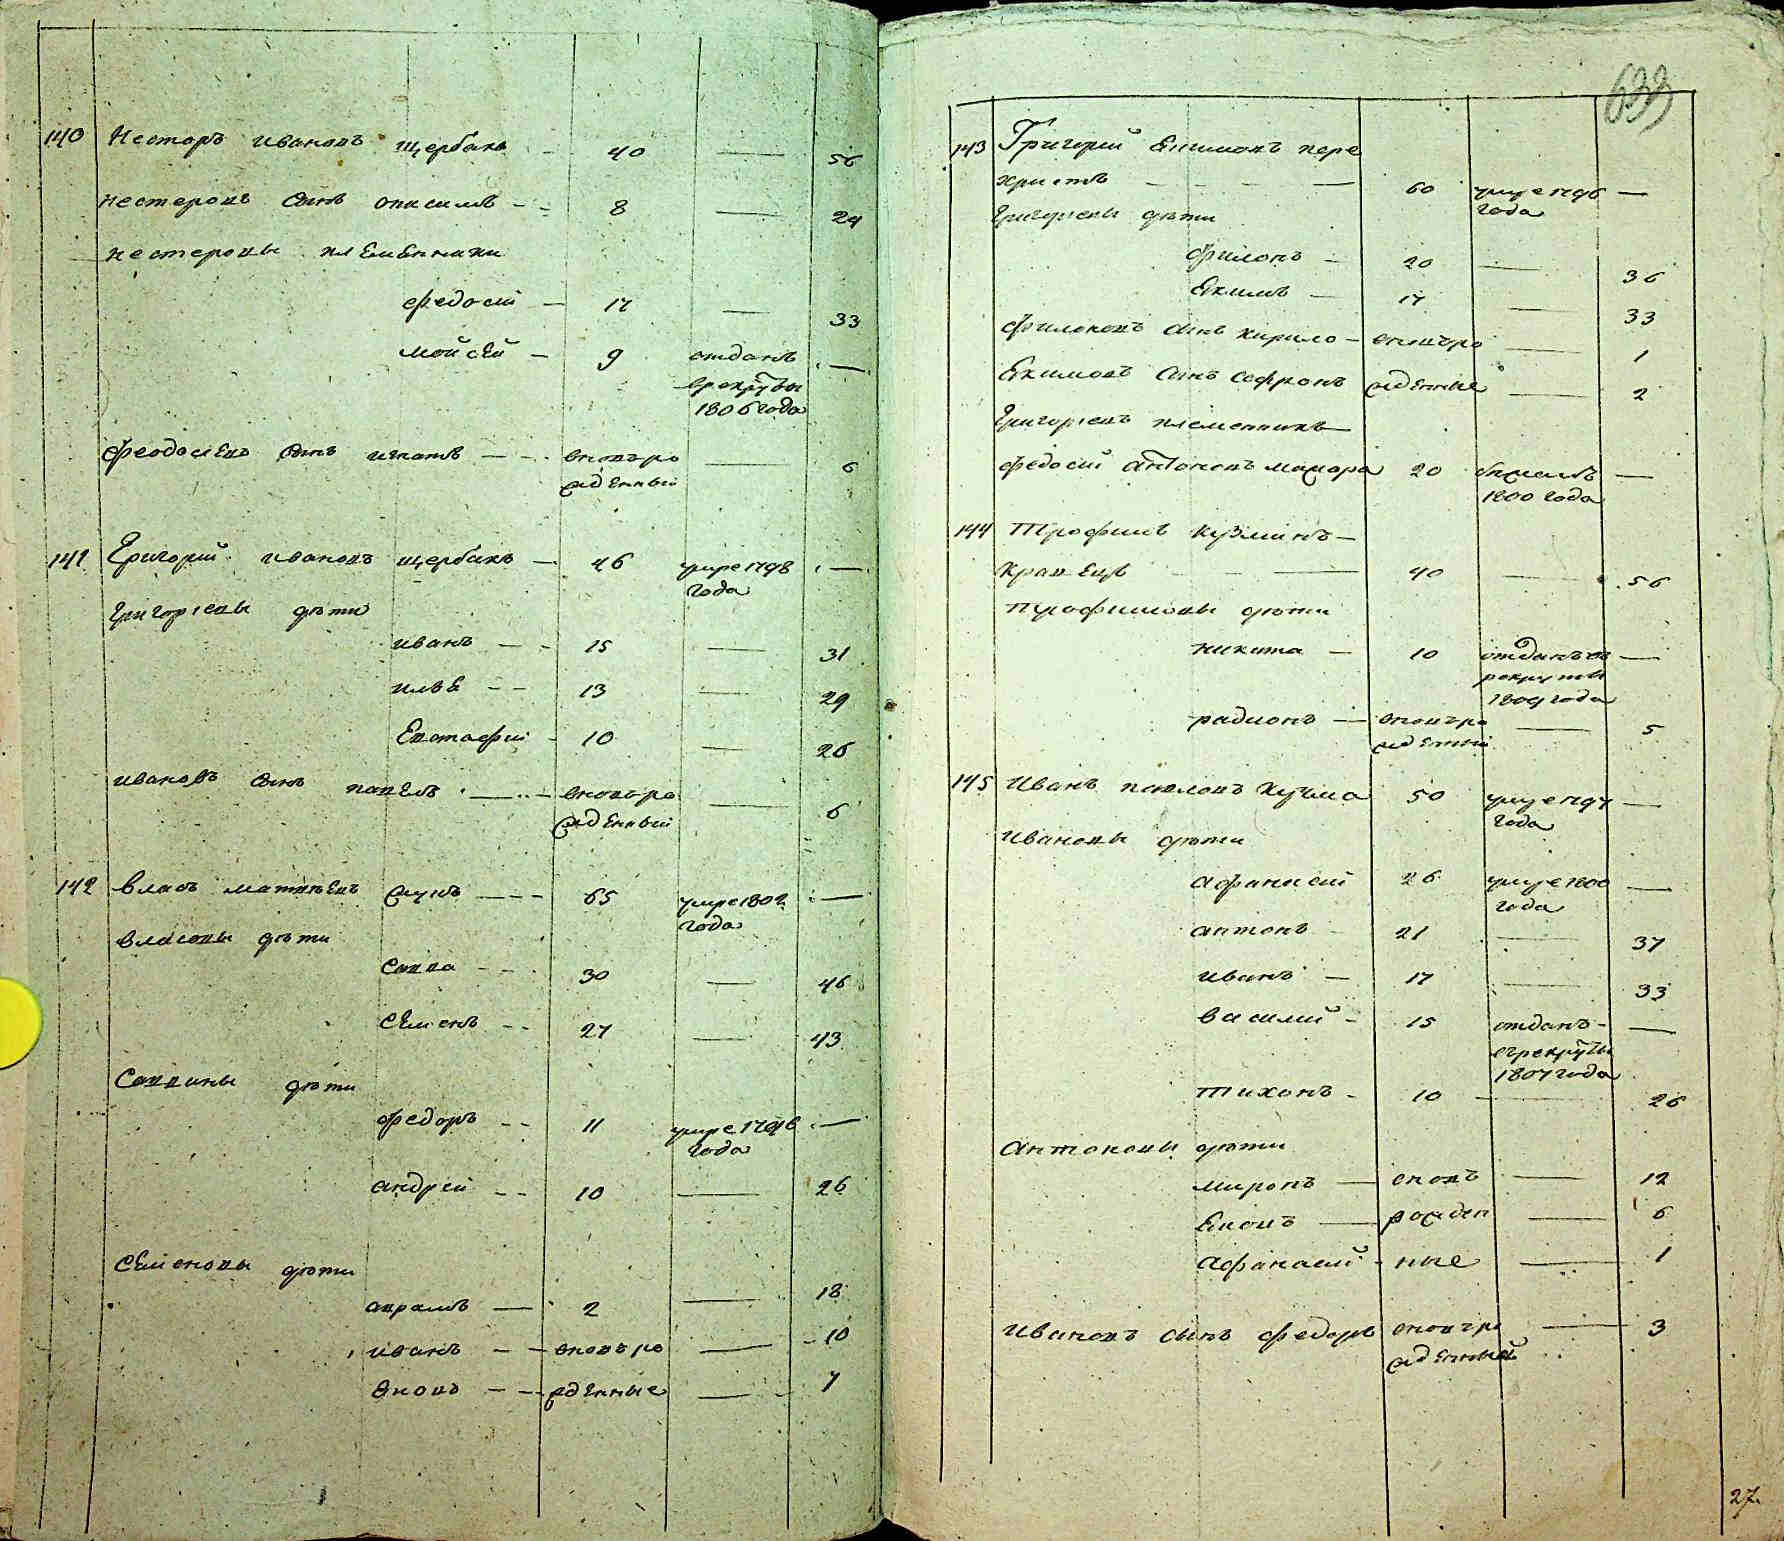 140 Несторъ Ивановъ Щербакъ — 40 — 56
Нестеровъ сынъ Онисимъ — 8 — 24
Нестеровы племенники
Федосий — 17 — 33
Мойсей — 9 отданъ —
врекруты
1806 года
Феодосиевъ сынъ Игнатъ — вновъро — 6
жденный
141 Григорий Ивановъ Щербакъ — 46 умре 1798 —
года
Григориевы дѣти
Иванъ — 15 — 31
Илья — 13 — 29
Евстафий — 10 — 26
Ивановъ сынъ Павелъ — вновъро — 6
жденный
142 Власъ Матвѣевъ — 65 умре 1802 —
года
Власовы дѣти
Савва — 30 — 46
Семенъ — 27 — 43
Саввины дѣти
Федоръ — 11 умре 1796 —
года
Андрей — 10 — 26
Семеновы дѣти
Аврамъ — 2 — 18
Иванъ — вновъро — 10
жденные — 7
633
143 Григорий Екимовъ пере
христъ — 60 умре 1796 —
года
Григориевы дѣти
Филонъ — 20 — 36
Екимъ — 17 — 33
Филоновъ сынъ Кирило — вновъро — 1
Екимовъ сынъ Софронъ жденные — 2
Григориевъ племенникъ
Федосий Антоновъ 20 бежалъ —
1800 года
144 Трофимъ Кузминъ —
Кравецъ — 40 — 56
Трофимовы дѣти
Никита — 10 отданъ въ —
рекруты
1804 года
Радионъ — вновъро — 5
жденный
145 Иванъ Павловъ Кучма 50 умре 1797 —
года
Ивановы дѣти
Афанасий 26 умре 1800 —
года
Антонъ — 21 — 37
Иванъ — 17 — 33
Василий — 15 отданъ —
врекруты
1807 года
Тихонъ — 10 — 26
Антоновы дѣти
Миронъ — вновъ — 12
рожден — 6
Афанасий — ные — 1
Ивановъ сынъ Федоръ вновъро — 3
жденный
27.